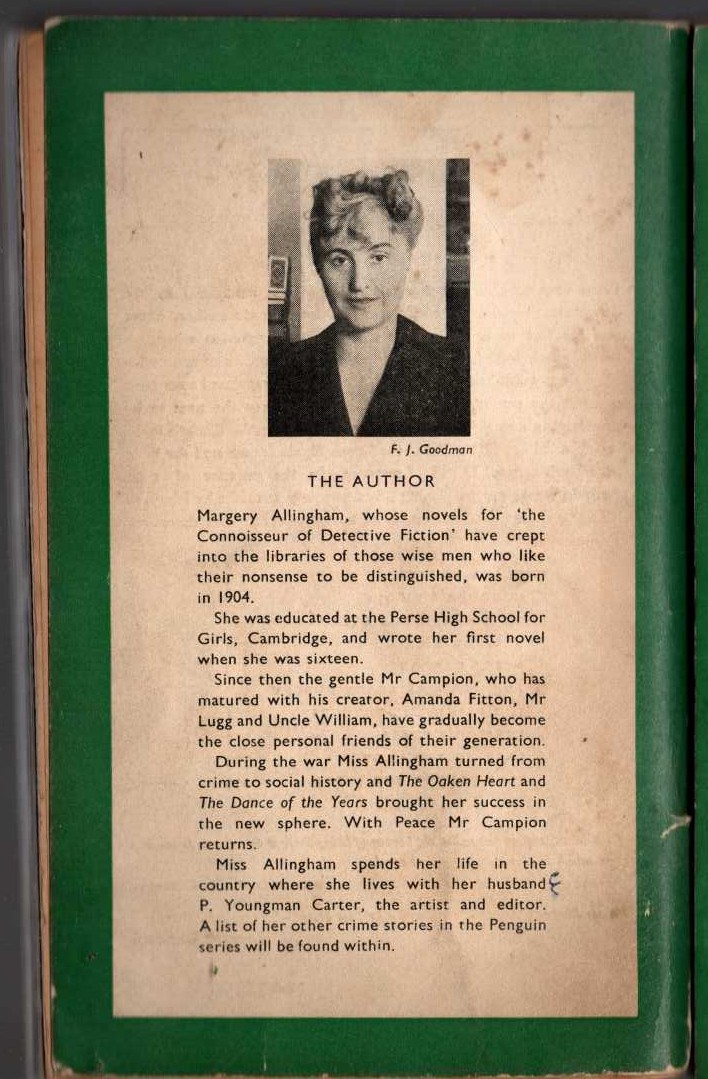 F. J. Goodman
THE AUTHOR
Margery Allingham, whose novels for 'the
Connoisseur of Detective Fiction' have crept
into the libraries of those wise men who like
their nonsense to be distinguished, was born
in 1904.
She was educated at the Perse High School for
Girls, Cambridge, and wrote her first novel
when she was sixteen.
Since then the gentle Mr Campion, who has
matured with his creator, Amanda Fitton, Mr
Lugg and Uncle William, have gradually become
the close personal friends of their generation.
During the war Miss Allingham turned from
crime to social history and The Oaken Heart and
The Dance of the Years brought her success in
the new sphere. With Peace Mr Campion
returns.
Miss Allingham spends her life in the
country where she lives with her husband
P. Youngman Carter, the artist and editor.
A list of her other crime stories in the Penguin
series will be found within.